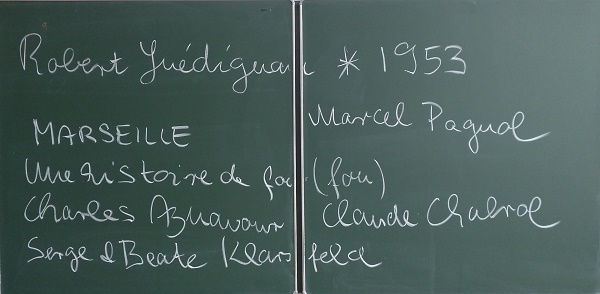 Robert Guédiguian * 1953
Marcel Pagnol
MARSEILLE
Une histoire de fou (fou)
Charles Aznavour Claude Chabrol
Serge & Beate Klarsfeld